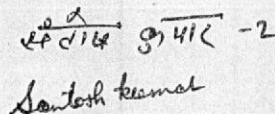 संतोष कुमार -2
Santosh kumar